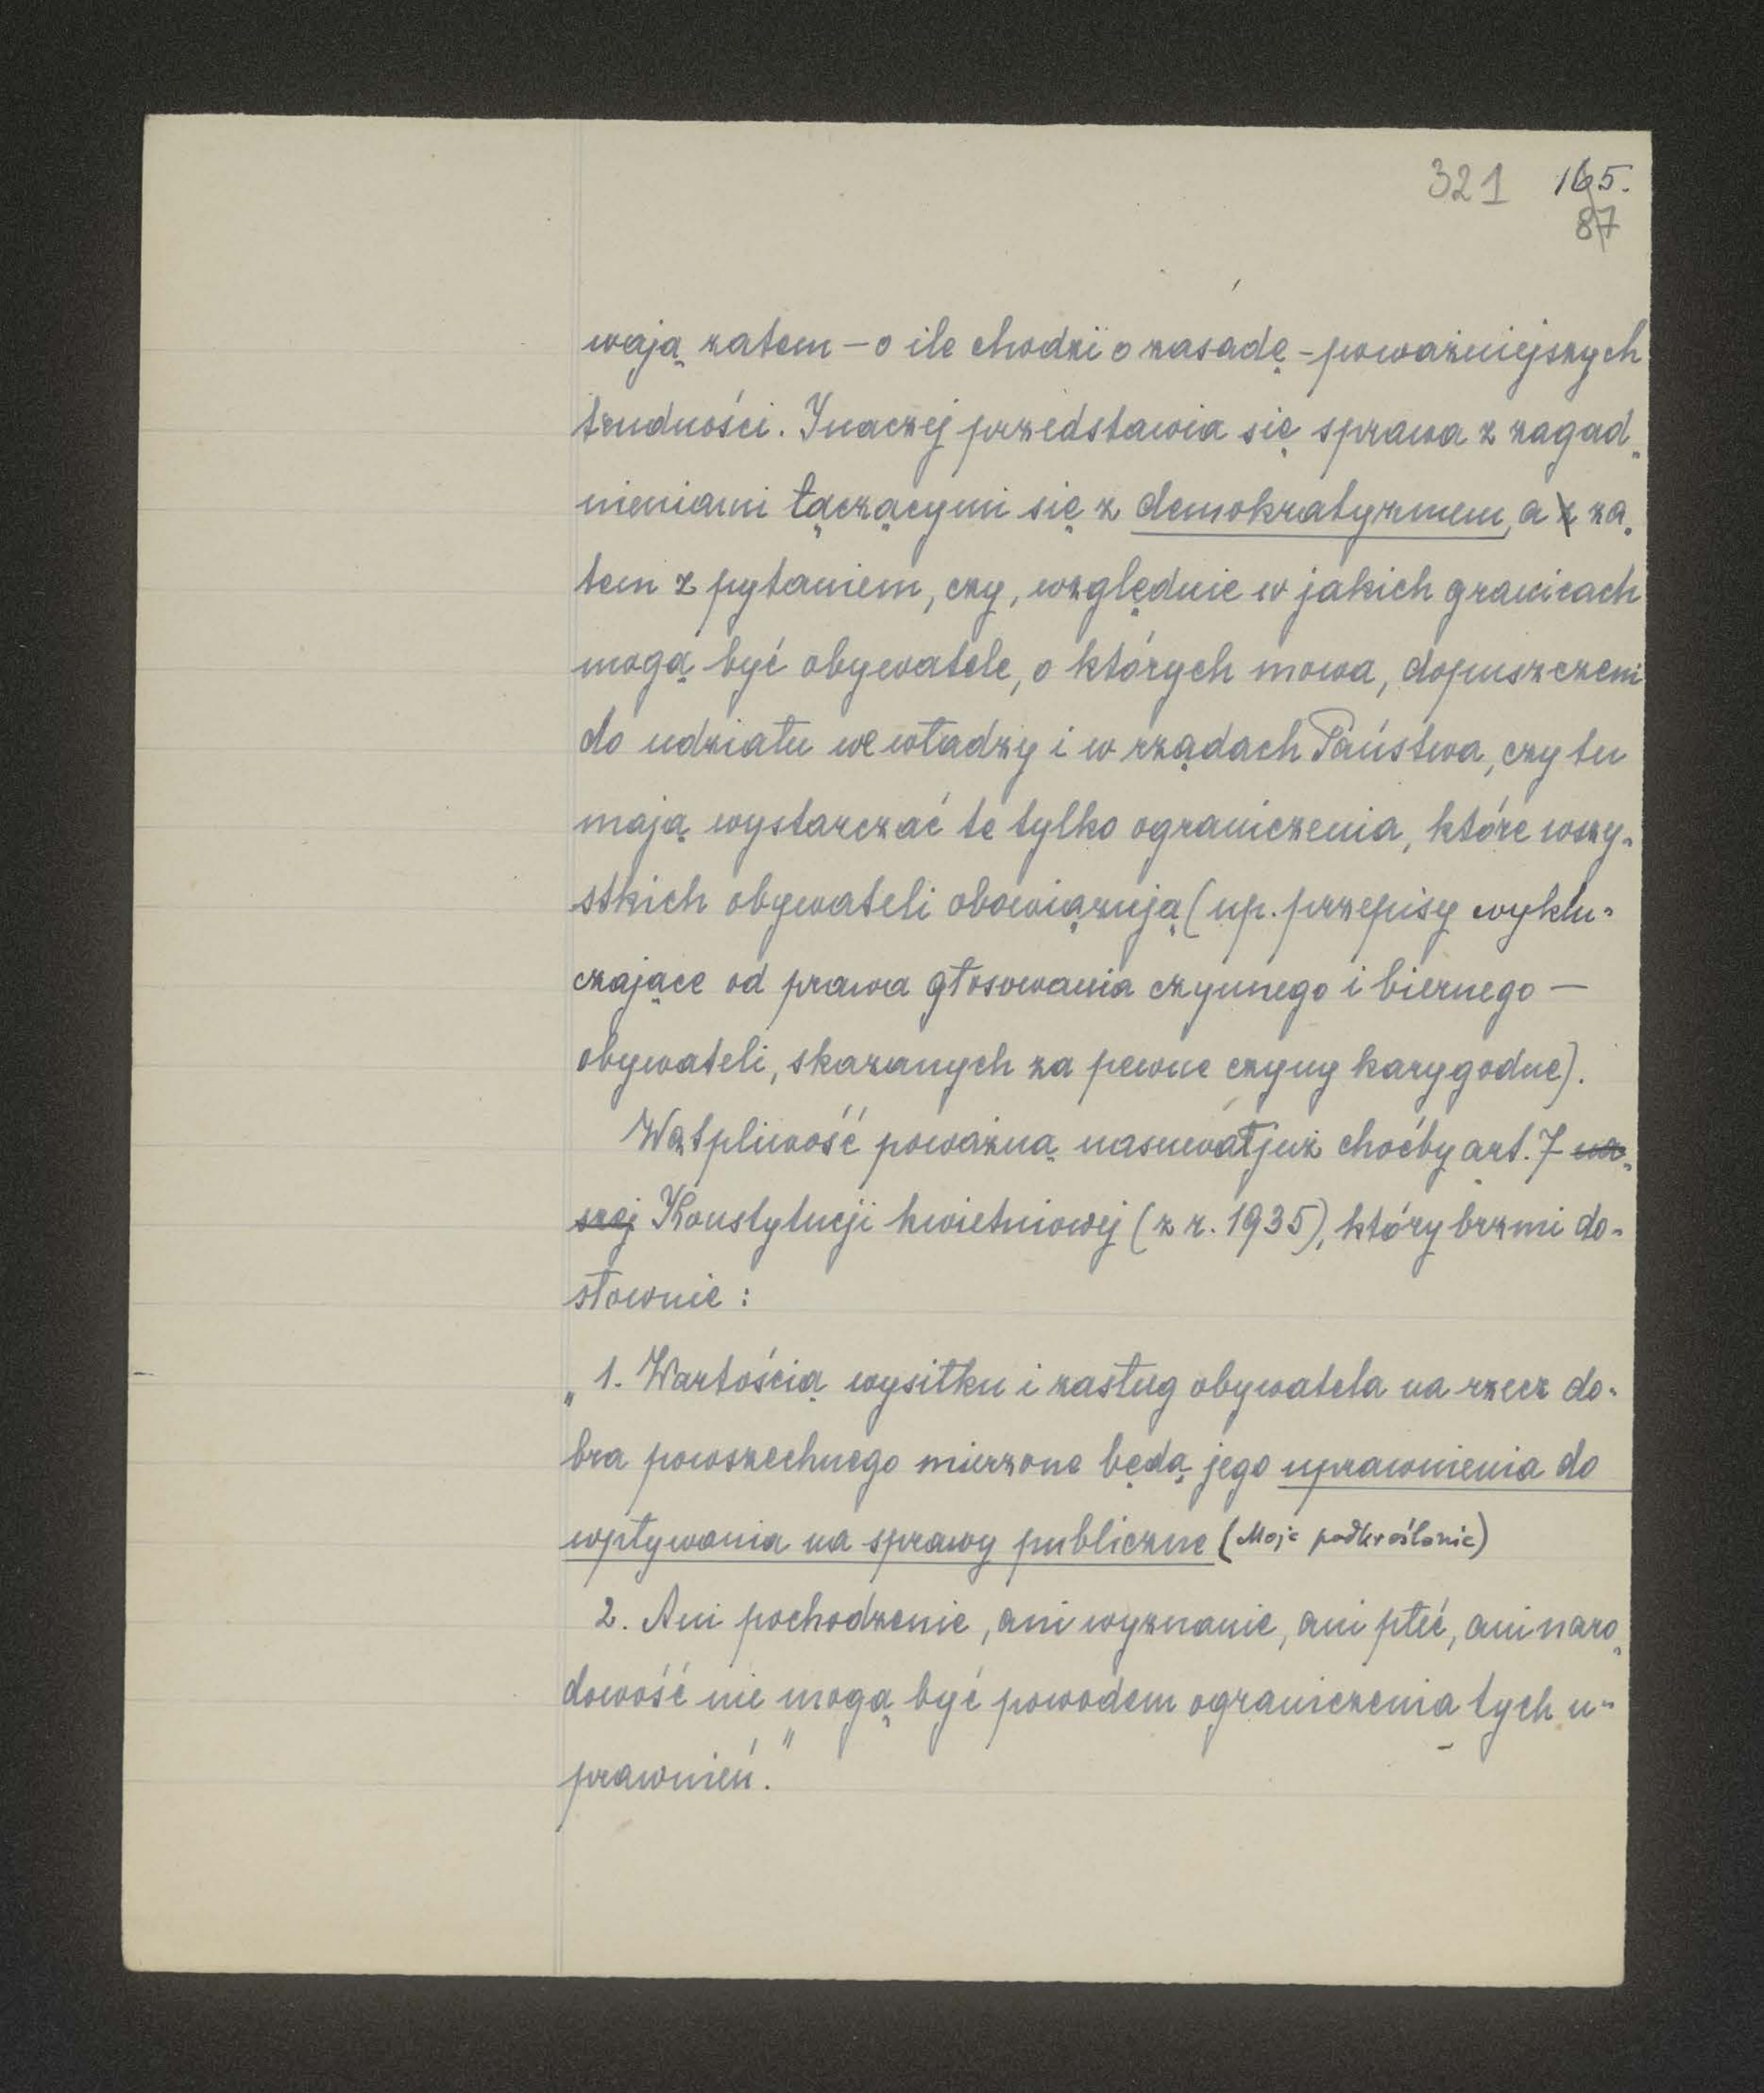 321 165.
87
wają zatem – o ile chodzi o zasadę – poważniejszych
trudności. Inaczej przedstawia się sprawa z zagad„
nieniami łączącymi się z demokratyzmem, a z za„
tem z pytaniem, czy, względnie w jakich granicach
mogą być obywatele, o których mowa, dopuszczeni
do udziału we władzy i w rządach Państwa, czy tu
mają wystarczać te tylko ograniczenia, które wszy„
stkich obywateli obowiązują (np. przepisy wyklu„
czające od prawa głosowania czynnego i biernego –
obywateli, skazanych za pewne czyny karygodne).
Wątpliwość poważną nasuwał już choćby art. 7 na„
szej Konstytucji kwietniowej (z r. 1935), który brzmi do„
słownie:
„1. Wartością wysiłku i zasług obywatela na rzecz do„
bra powszechnego mierzone będą jego uprawnienia do
wpływania na sprawy publiczne (Moje podkreślenie)
2. Ani pochodzenie, ani wyznanie, ani płeć, ani naro„
dowość nie mogą być powodem ograniczenia tych u„
prawnień."